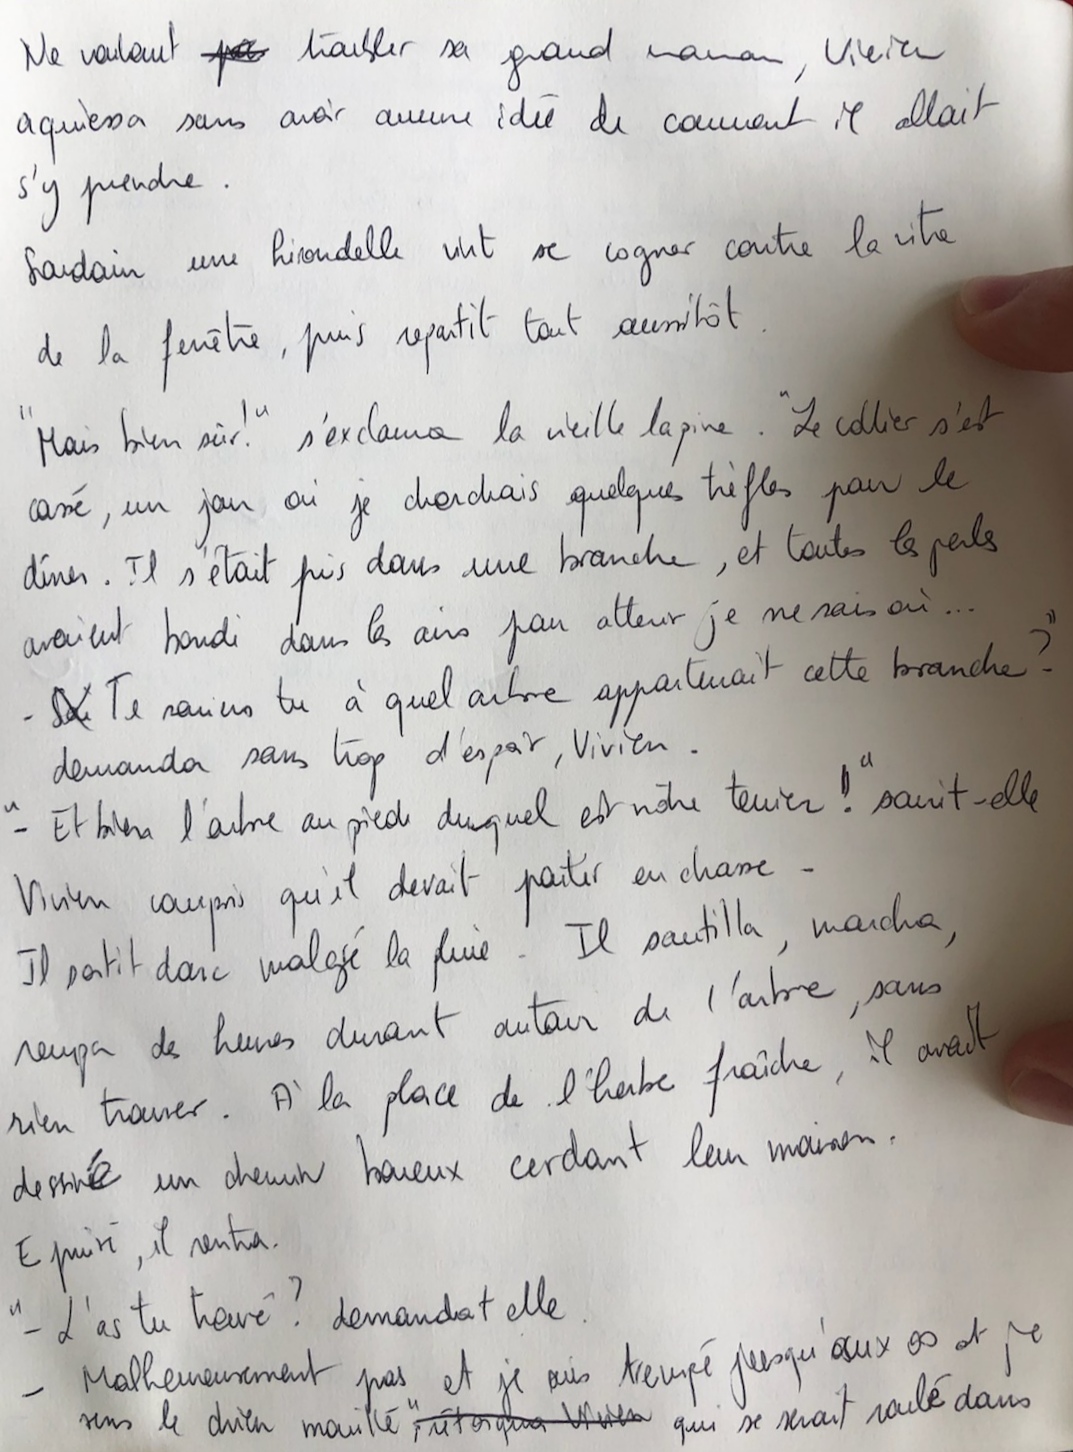 Ne voulant pas troubler sa grand maman, Vivien
aquiessa sans avoir aucune idée de comment il allait
s'y prendre.
Soudain une hirondelle vint se cogner contre la vitre
de la fenêtre, puis repartit tout aussitôt.
"Mais bien sûr!" s'exclama la vieille lapine. "Le collier s'est
cassé, un jour où je cherchais quelques trèfles pour le
dîner. Il s'était pris dans une branche, et toutes les perles
avaient bondi dans les airs pour atterir je ne sais où...
- Te saurais tu à quel arbre appartenait cette branche?"
demanda sans trop d'espoir, Vivien.
"- Et bien l'arbre au pied duquel est nôtre terrier!" sourit-elle
Vivien compris qu'il devait partir en chasse.
Il sortit donc malgré la pluie. Il sautilla, marcha,
rampa des heures durant autour de l'arbre, sans
rien trouver. À la place de l'herbe fraîche, il avait
dessiné un chemin boueux cerclant leur maison.
Epuisé, il rentra.
"- L'as tu trouvé? demandat elle.
- Malheureusement pas, et je suis trempé jusqu'aux os et je
sens le chien mouillé", rétorqua Vivien qui se serait roulé dans